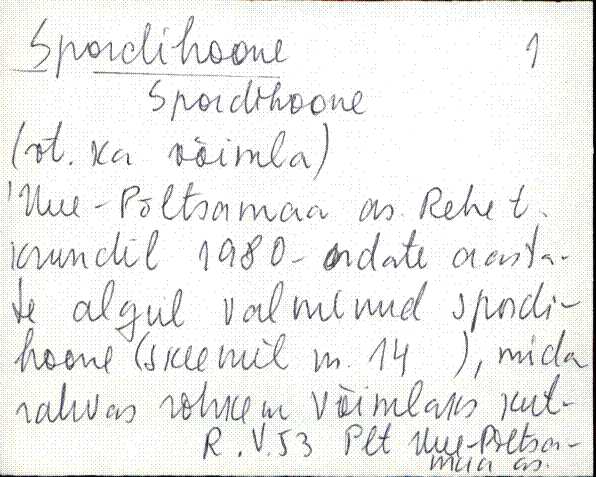 Spordihoone 1
Spordihoone
(vt. ka võimla)
Uue-Põltsamaa as. Rehe t.
krundil 1980-ndate aasta-
te algul valminud spordi-
hoone (skeemil nr. 14 ), mida
rahvas rohkem võimlaks kut-
R.V.53 Plt Uue-Põltsa-
maa as.